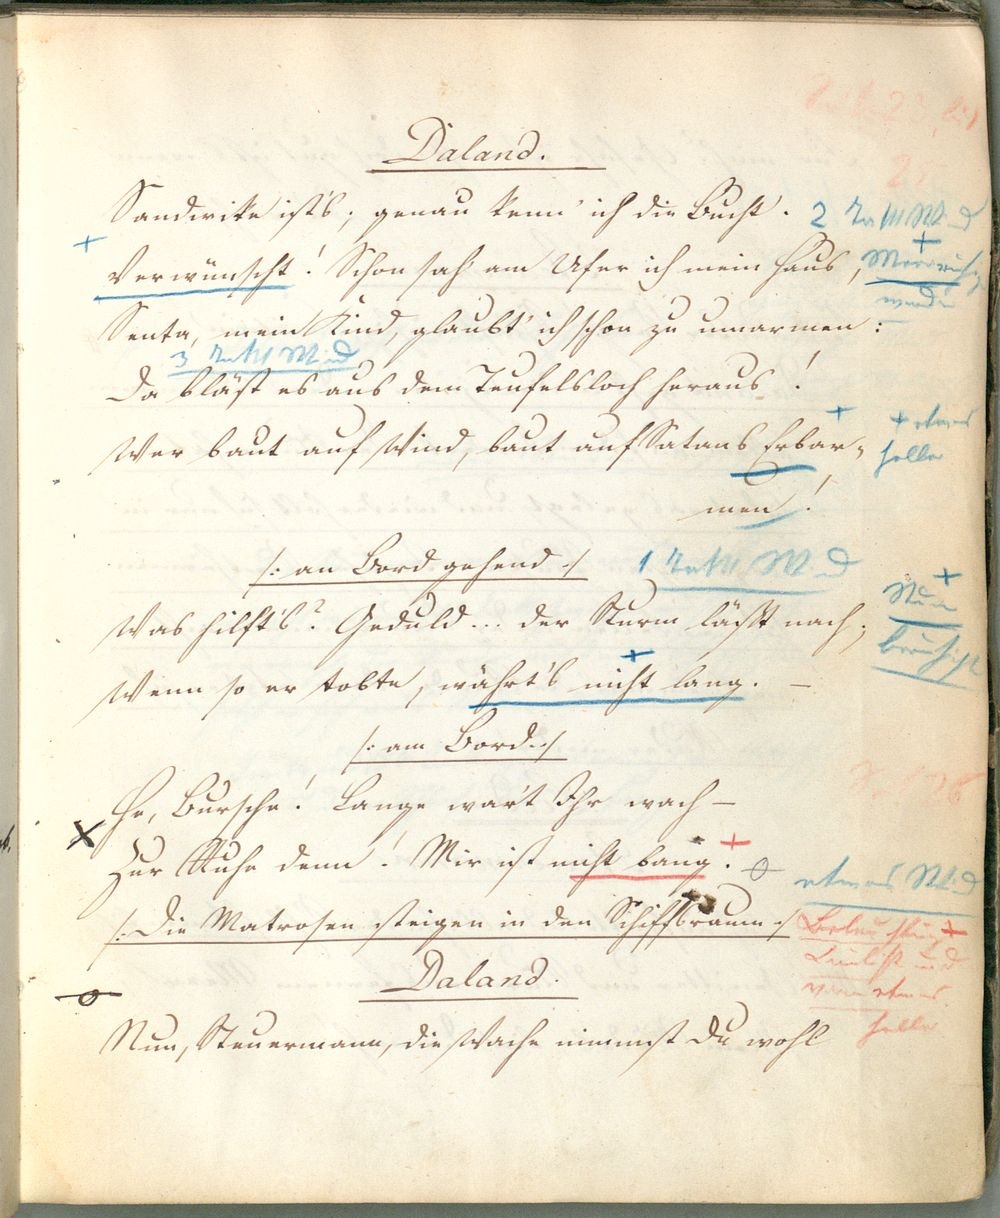 Daland.
Sandwike ist's, genau kenn' ich die Bucht. 2
Verwünscht! Schon sah' am Ufer ich mein Haus,
Senta, mein Kind, glaubt' ich schon zu umarmen:
3
Da bläst es aus dem Teufelsloch heraus!
Wer baut auf Wind, baut auf Satans Erbar-
+ etwas
heller
men!
/: an Bord gehend :/ 1
Was hilft's? Geduld... der Sturm läßt nach;
Wenn so er tobte, währt's nicht lang. –
/: am Bord :/
He, Bursche! Lange war't Ihr wach –
Zur Ruhe denn! Mir ist nicht bang.
etwas Wind
/: Die Matrosen steigen in den Schiffsraum :/
Daland.
vorn etwas
heller
Nun, Steuermann, die Wache nimmst Du wohl